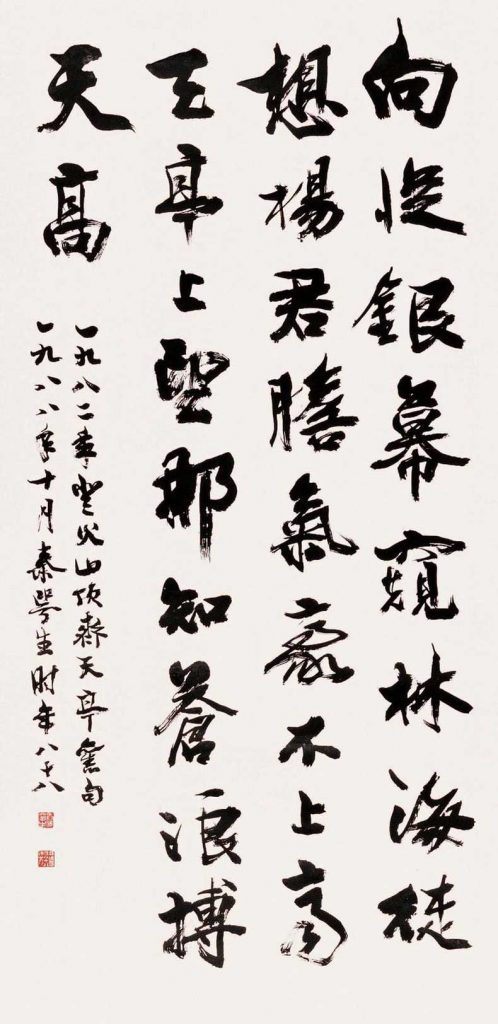 向從銀幕窺林海徒
想楊君膽氣豪不上高
天亭上望那知蒼浪搏
天高
一九八二年登火山頂天亭舊句
一九八八年十月秦咢生时年八十八